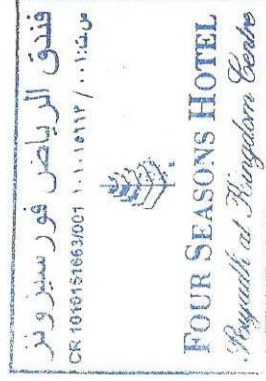 فندق الرياض فور سيزونز
CR 1010151663/001
FOUR SEASONS HOTEL
Riyadh at Kingdom Centre